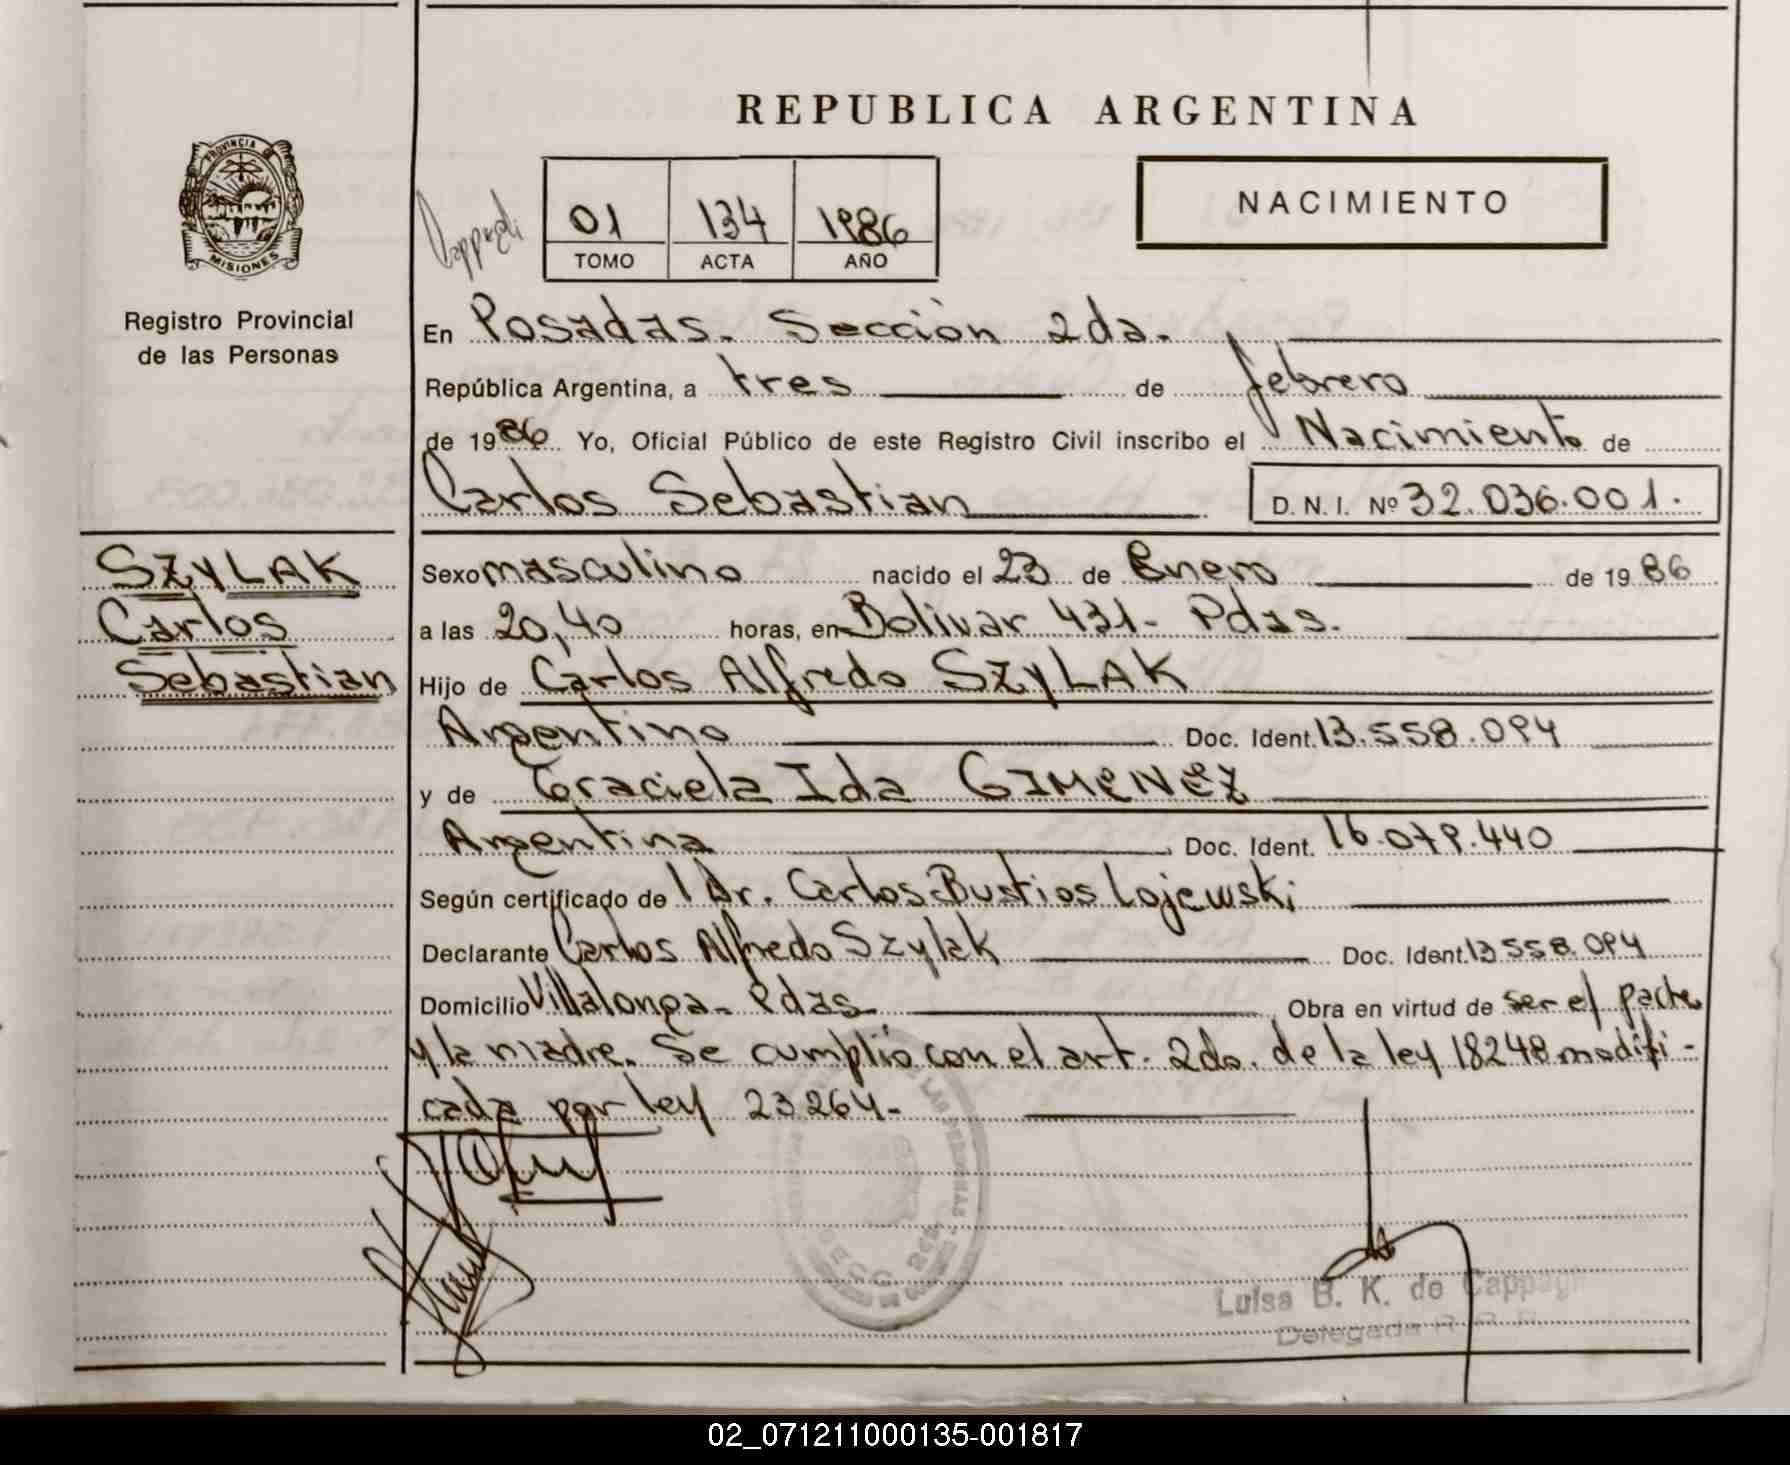 REPUBLICA ARGENTINA
PROVINCIA DE
MISIONES
Registro Provincial
de las Personas
Cappagli
01 134 1986
TOMO ACTA AÑO
NACIMIENTO
En Posadas. Sección 2da.
República Argentina, a tres de febrero
de 1986 Yo, Oficial Público de este Registro Civil inscribo el Nacimiento de
Carlos Sebastian D.N.I. Nº 32.036.001.
SZYLAK
Carlos
Sebastian
Sexo masculino nacido el 23 de Enero de 1986
a las 20,40 horas, en Bolivar 431- Pdas.
Hijo de Carlos Alfredo SZYLAK
Argentino Doc. Ident. 13.558.094
y de Graciela Ida GIMENEZ
Argentina Doc. Ident. 16.079.440
Según certificado de l Dr. Carlos Bustios Lojewski
Declarante Carlos Alfredo Szylak Doc. Ident. 13.558.094
Domicilio Villalonga- Pdas Obra en virtud de ser el padre
y la madre. Se cumplio con el art. 2do. de la ley 18248 modifi-
cada por ley 23264-
LAS PERSONAS
Luisa B. K. de Cappagli
Delegada R. P. P.
02_071211000135-001817